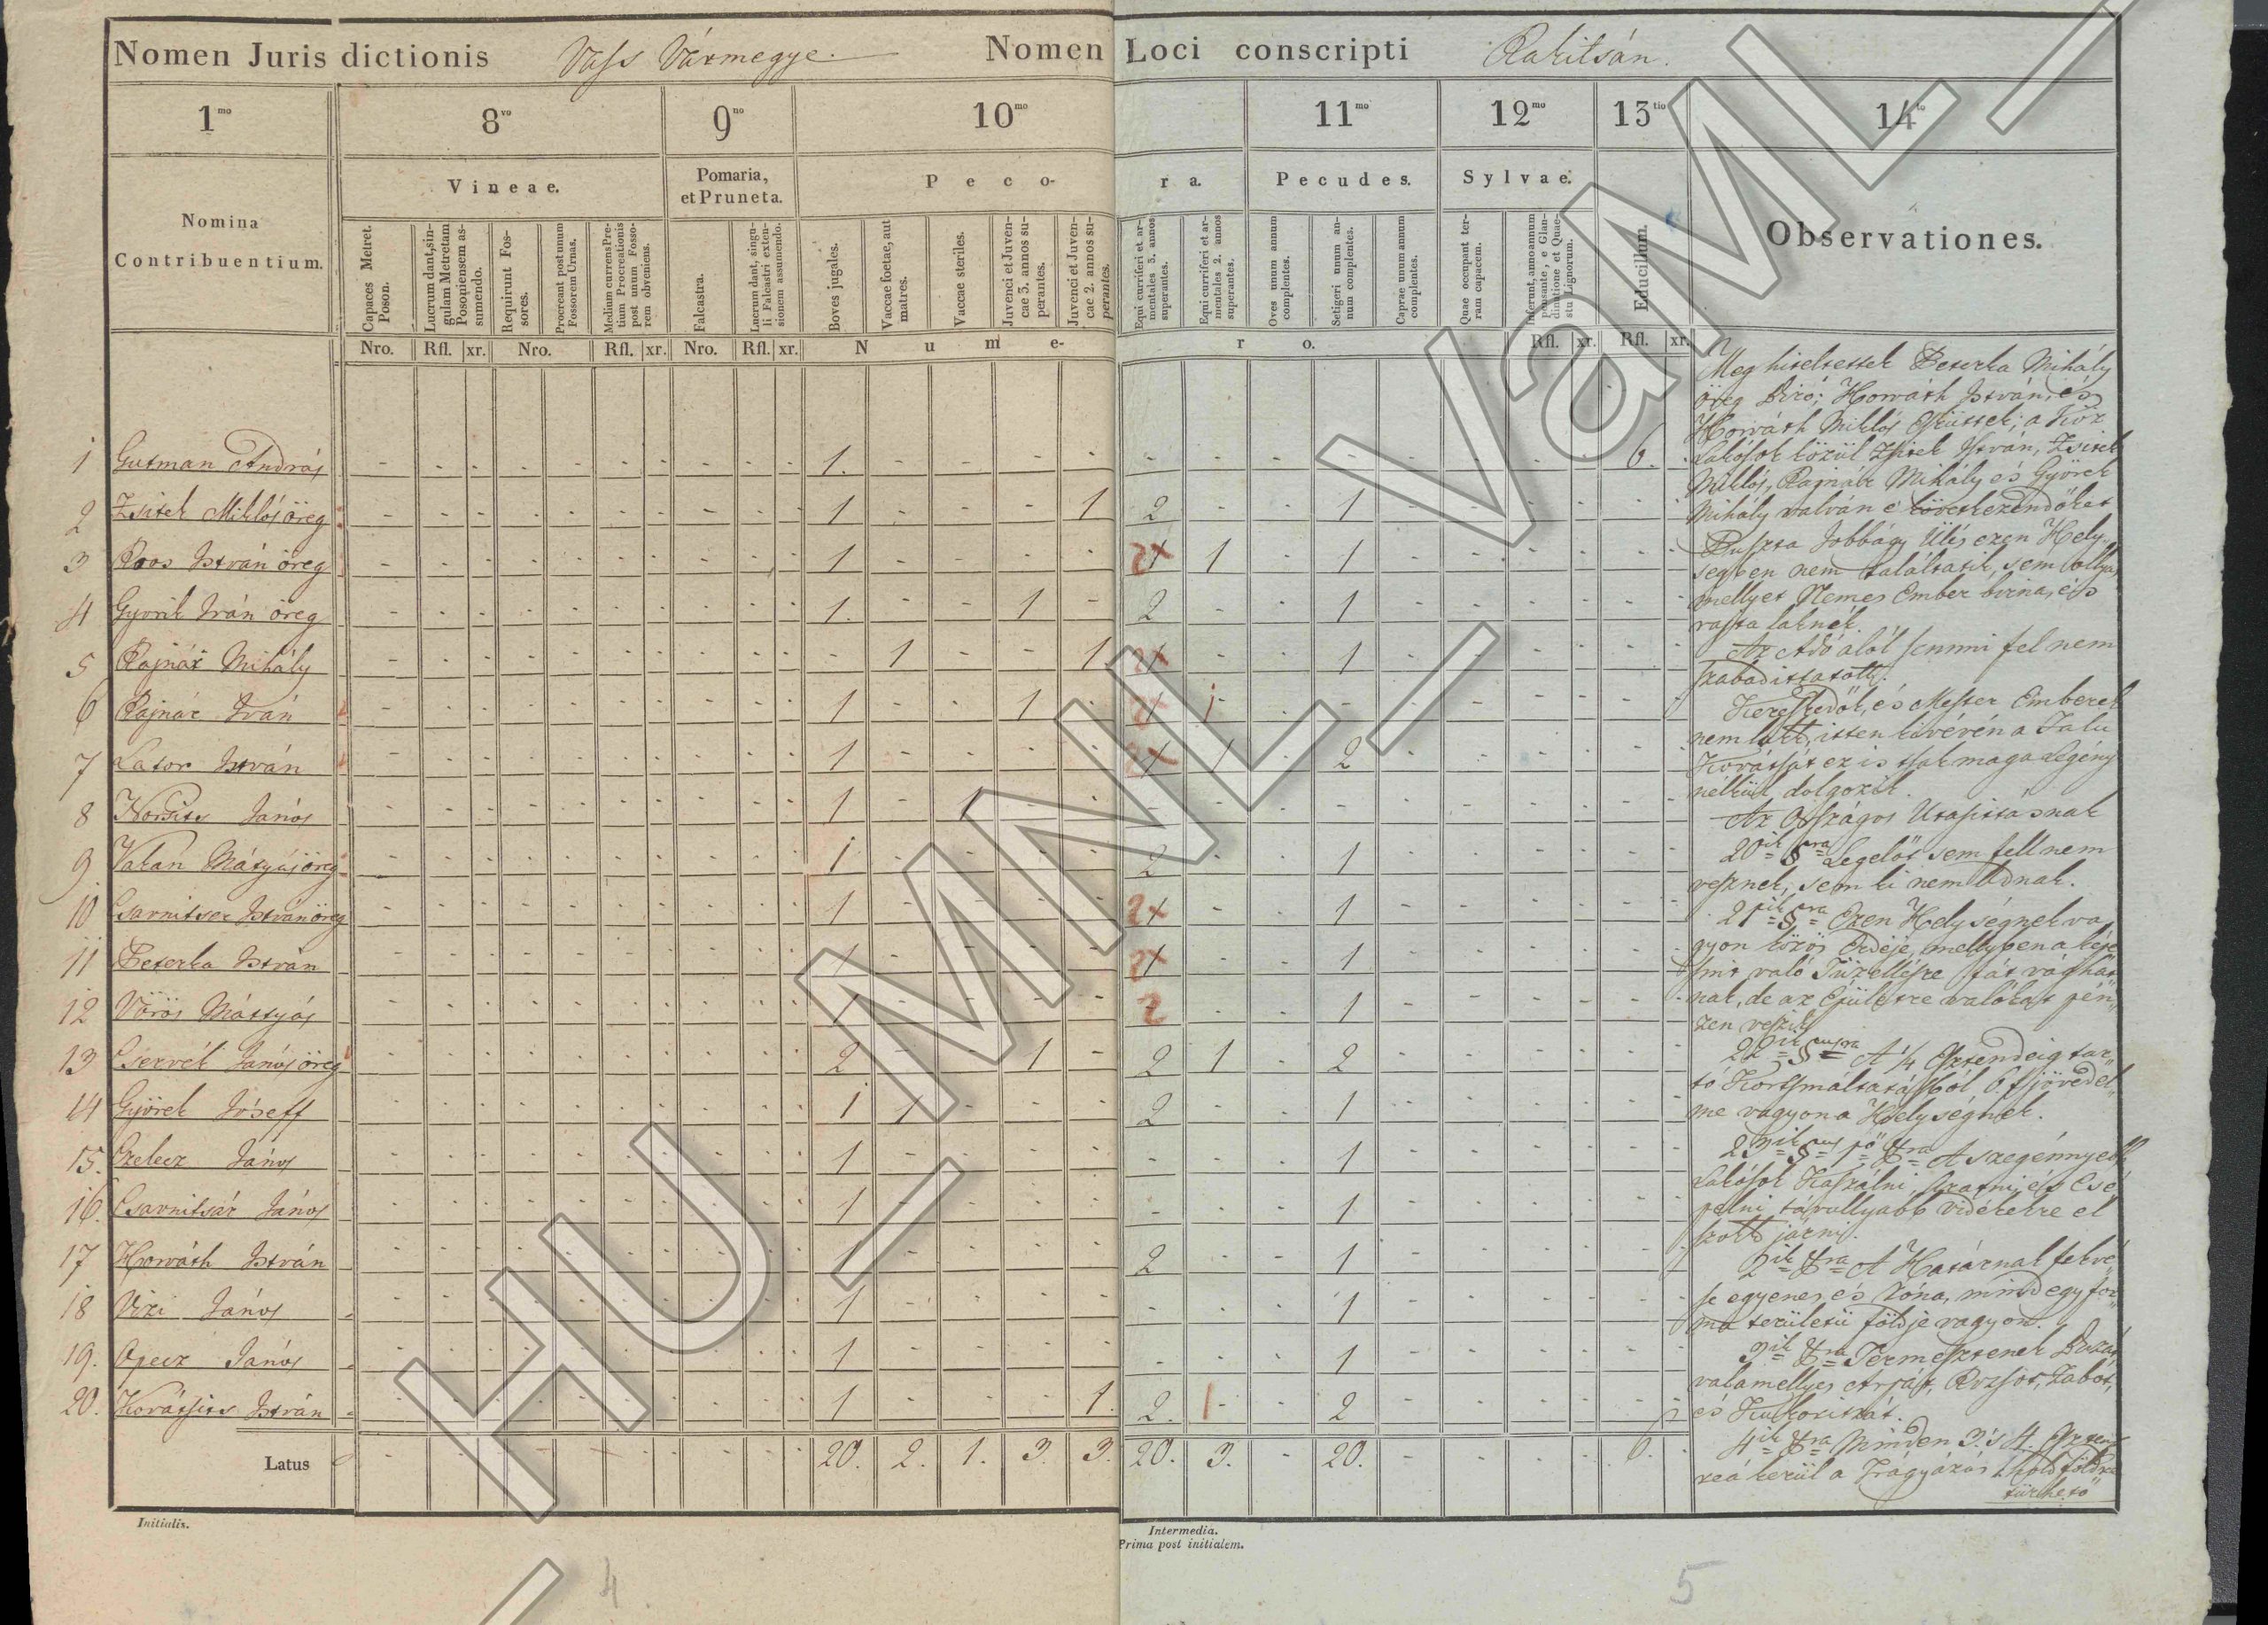 Nomen Juris dictionis Vass Vármegye. Nomen Loci conscripti Rakitsán.
1mo 8vo 9no 10mo 11mo 12mo 13tio 14to
Nomina Contribuentium.
Vineae.
Pomaria, et Pruneta.
Pecora.
Pecudes.
Sylvae.
Educillum.
Observationes.
Capaces Metret. Poson.
Lucrum dant, singulam Metretam Posoniensem assumendo.
Requirunt Fossores.
Procreant post unum Fossorem Urnas.
Medium currens Pretium Procreationis post unum Fossorem obveniens.
Falcastra.
Lucrum dant, singuli Falcastri extensionem assumendo.
Boves jugales.
Vaccae foetae, aut matres.
Vaccae steriles.
Juvenci et Juvencae 3. annos superantes.
Juvenci et Juvencae 2. annos superantes.
Equi curriferi et armentales 3. annos superantes.
Equi curriferi et armentales 2. annos superantes.
Oves unum annum complentes.
Setigeri unum annum complentes.
Caprae unum annum complentes.
Quae occupant terram capacem.
Inferunt, anno annum pensante, e Glandinatione et Quaestu Lignorum.
Nro. Rfl. xr. Nro. Rfl. xr. Nro. Rfl. xr. Numero. Rfl. xr. Rfl. xr.
1 Gutman András - - - - - - - - - - 1. - - - - - - - - - - - - - 6. -
2 Zsitek Miklós öreg - - - - - - - - - - 1 - - - 1 2 - - 1 - - - - - -
3 Poos István öreg - - - - - - - - - - 1 - - - - 2 1 - 1 - - - - - -
4 Gyorik Iván öreg - - - - - - - - - - 1. - - 1 - 2 - - 1 - - - - - -
5 Rajnár Mihály - - - - - - - - - - - 1 - - 1 2 - - 1 - - - - - -
6 Rajnár Iván - - - - - - - - - - 1 - - 1 - 2 1 - - - - - - - -
7 Lator István - - - - - - - - - - 1 - - - - 2 1 - 2 - - - - - -
8 János - - - - - - - - - - 1 - 1 - - - - - - - - - - - -
9. Vakan Mátyás öreg - - - - - - - - - - 1 - - - - 2 - - 1 - - - - - -
10 Csarnitser István öreg - - - - - - - - - - 1 - - - - 2 - - 1 - - - - - -
11 Peterka István - - - - - - - - - - 1 - - - - 2 - - 1 - - - - - -
12 Vörös Mátyás - - - - - - - - - - 1 - - - - 2 - - 1 - - - - - -
13 Cservék János öreg - - - - - - - - - - 2 - - 1 - 2 1 - 2 - - - - - -
14 Györek Jóseff - - - - - - - - - - 1 1 - - - 2 - - 1 - - - - - -
15. János - - - - - - - - - - 1 - - - - - - - 1 - - - - - -
16. Csarnitsár János - - - - - - - - - - 1 - - - - - - - 1 - - - - - -
17 Horváth István - - - - - - - - - - 1 - - - - 2 - - 1 - - - - - -
18 Vizi János - - - - - - - - - - 1 - - - - - - - 1 - - - - - -
19. János - - - - - - - - - - 1 - - - - - - - 1 - - - - - -
20. Kovátsits István - - - - - - - - - - 1 - - - 1. 2. 1 - 2 - - - - - -
Latus - - - - - - - - - - 20. 2. 1. 3. 3. 20. 3. - 20. - - - - - 6. -
Meg hiteltettek Peterka Mihály
öreg Biró; Horváth István, és
Horváth Miklós Esküttek; a Köz
Lakósok közül Zsitek István, Zsitek
Miklós, Rajnár Mihály és Györek
Mihály valván e' következendőket
Puszta Jobbágy Ülés ezen Hely-
ségben nem találtatik, sem ollyan
mellyet Nemes Ember birna, és
rajta laknék.
Az Adó alól semmi fel nem
szabadíttatott.
Kereskedők, és Mester Emberek
nem lakt, itten kivévén a Falu
Kovátsját ez is tsak maga Legény
nélkül dolgozik.
Az Országos Utasittásnak
20ik §ra Legelőt sem fell nem
vesznek, sem ki nem adnak.
21ik §ra Ezen Helységnek va-
gyon közös Erdeje, mellyben
való Tüzellésre fát vághat
nak, de az Épületre valókat pén-
zen veszik.
22ik § A' 1/4 Esztendeig tar-
tó Kortsmáltatásból 6 f jövedel-
me vagyon a Helységnek.
23ik § A szegénnyebb
Lakósok Kaszálni, Aratni, és Csé-
pelni távullyabb vidékekre el
szoktak járni.
2ik A Határnak fekvé-
se egyenes és Róna, mind egy for-
ma területű földje vagyon.
3ik Termesztenek Buzát,
valamellyes Árpát, Rozsot, Zabot,
és Kukoritzát.
4ik Minden 3. 's 4. Eszten-
reá kerül a Trágyázás 1 hold földre
Initialis.
Intermedia.
Prima post initialem.
4
5
HU_MNL_VaML_